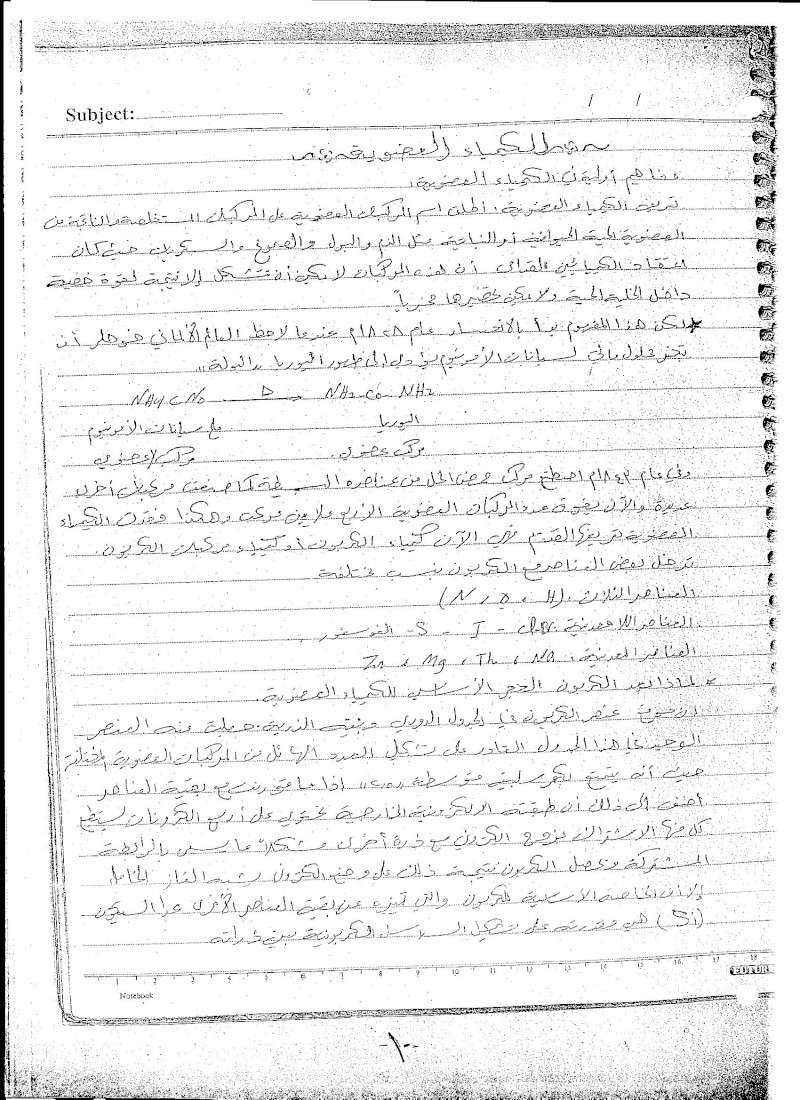 Subject:
/ /
الكيمياء العضوية
مفاهيم أولية في الكيمياء العضوية:
تعريف الكيمياء العضوية: أطلق اسم المركبات العضوية على المركبات المستخلصة والناتجة من
العضوية الحية الحيوانية أو النباتية مثل الدم والبول والصموغ والسكريات حيث كان
اعتقاد الكيميائيين القدامى أن هذه المركبات لا يمكن أن تتشكل إلا نتيجة لقوة خفية
داخل الخلية الحية ولا يمكن تحضيرها مخبرياً
لكن هذا المفهوم بدأ بالانحسار عام ١٨٢٨م عندما لاحظ العالم الألماني فوهلر أن
محلول مائي لسيانات الأمونيوم يؤدي إلى ظهور اليوريا "البولة"
NH4CNO Δ → NH2-CO-NH2
اليوريا ملح سيانات الأمونيوم
مركب عضوي مركب لاعضوي
وفي عام اصطنع مركب حمض الخل من عناصره البسيطة كما صنعت مركبات أخرى
عديدة والآن يفوق عدد المركبات العضوية الأربع ملايين مركب وهكذا فقدت الكيمياء
العضوية تعريفها القديم فهي الآن كيمياء الكربون أو كيمياء مركبات الكربون.
تدخل بعض العناصر مع الكربون بنسب مختلفة
العناصر الثلاث: (N , O , H)
العناصر اللامعدنية: I - S - الفوسفور
العناصر المعدنية: Zn , Mg , Th , Na
* لماذا يعد الكربون الحجر الأساسي للكيمياء العضوية.
إن موقع عنصر الكربون في الجدول الدوري وبنيته الذرية جعلت منه العنصر
الوحيد في هذا الجدول القادر على تشكل العدد الهائل من المركبات العضوية المختلفة
حيث أنه يتمتع بكهرسلبية متوسطة إذا ما قورنت مع بقية العناصر
أضف إلى ذلك أن طبقته الالكترونية الخارجية تحتوي على أربع الكترونات يستطيع
كل منها الاشتراك بزوج الكتروني مع ذرة أخرى مشكلاً ما يسمى بالرابطة
المشتركة ويحصل الكربون نتيجة ذلك على وضع الكتروني يشبه الغاز الخامل
إلا أن الخاصة الأساسية للكربون والتي تميزه عن بقية العناصر الأخرى عدا السيليكون
(Si) هي مقدرته على تشكيل السلاسل الكربونية بين ذراته
1 2 3 4 5 6 7 8 9 10 11 12 13 14 15 16 17 18
Notebook
EDITOR
-١٠-